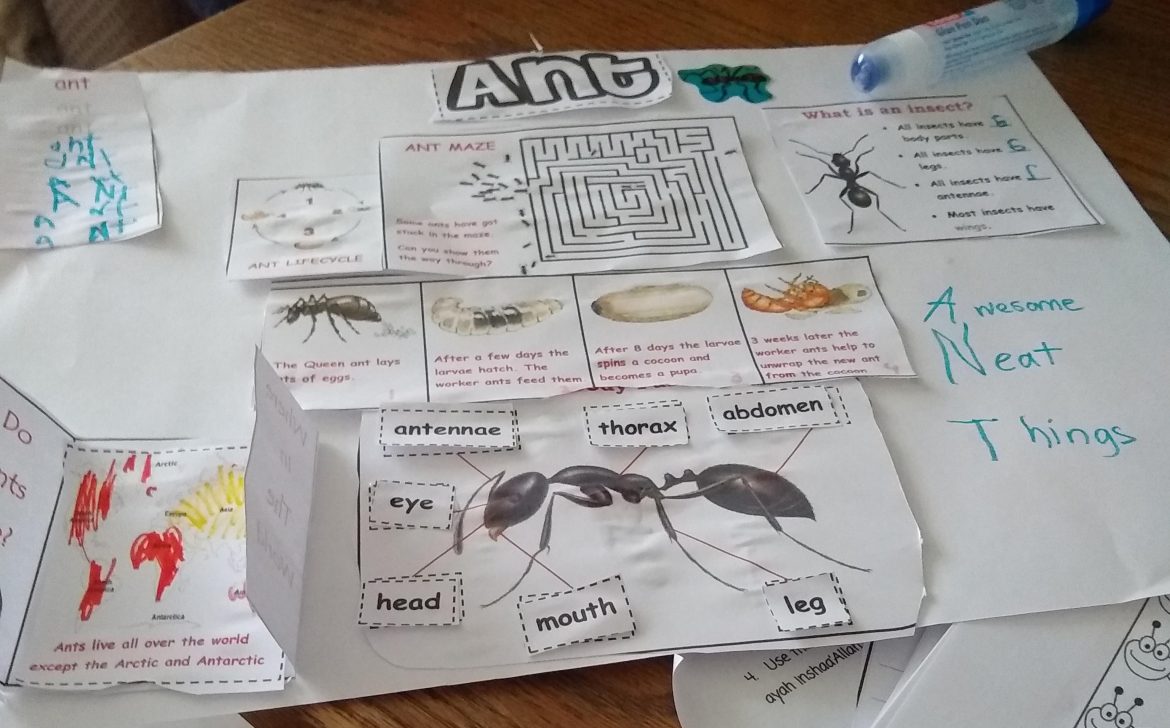 Ant
Glue Pen
ant
ant
What is an insect?
All insects have 6
body parts.
All insects have 6
legs.
All insects have
antennae.
Most insects have
wings.
ANT MAZE
Some ants have got
stuck in the maze.
Can you show them
the way through?
1
3
ANT LIFECYCLE
The Queen ant lays
of eggs.
After a few days the
larvae hatch. The
worker ants feed them
After 8 days the larvae
spins a cocoon and
becomes a pupa.
3 weeks later the
worker ants help to
unwrap the new ant
from the cocoon
Awesome
Neat
Things
antennae
thorax
abdomen
eye
head
mouth
leg
Do
nts
?
Where
in
The
World
Arctic
Europe
Asia
Antarctica
Ants live all over the world
except the Arctic and Antarctic
4. Use
ayah inshaa'Allah